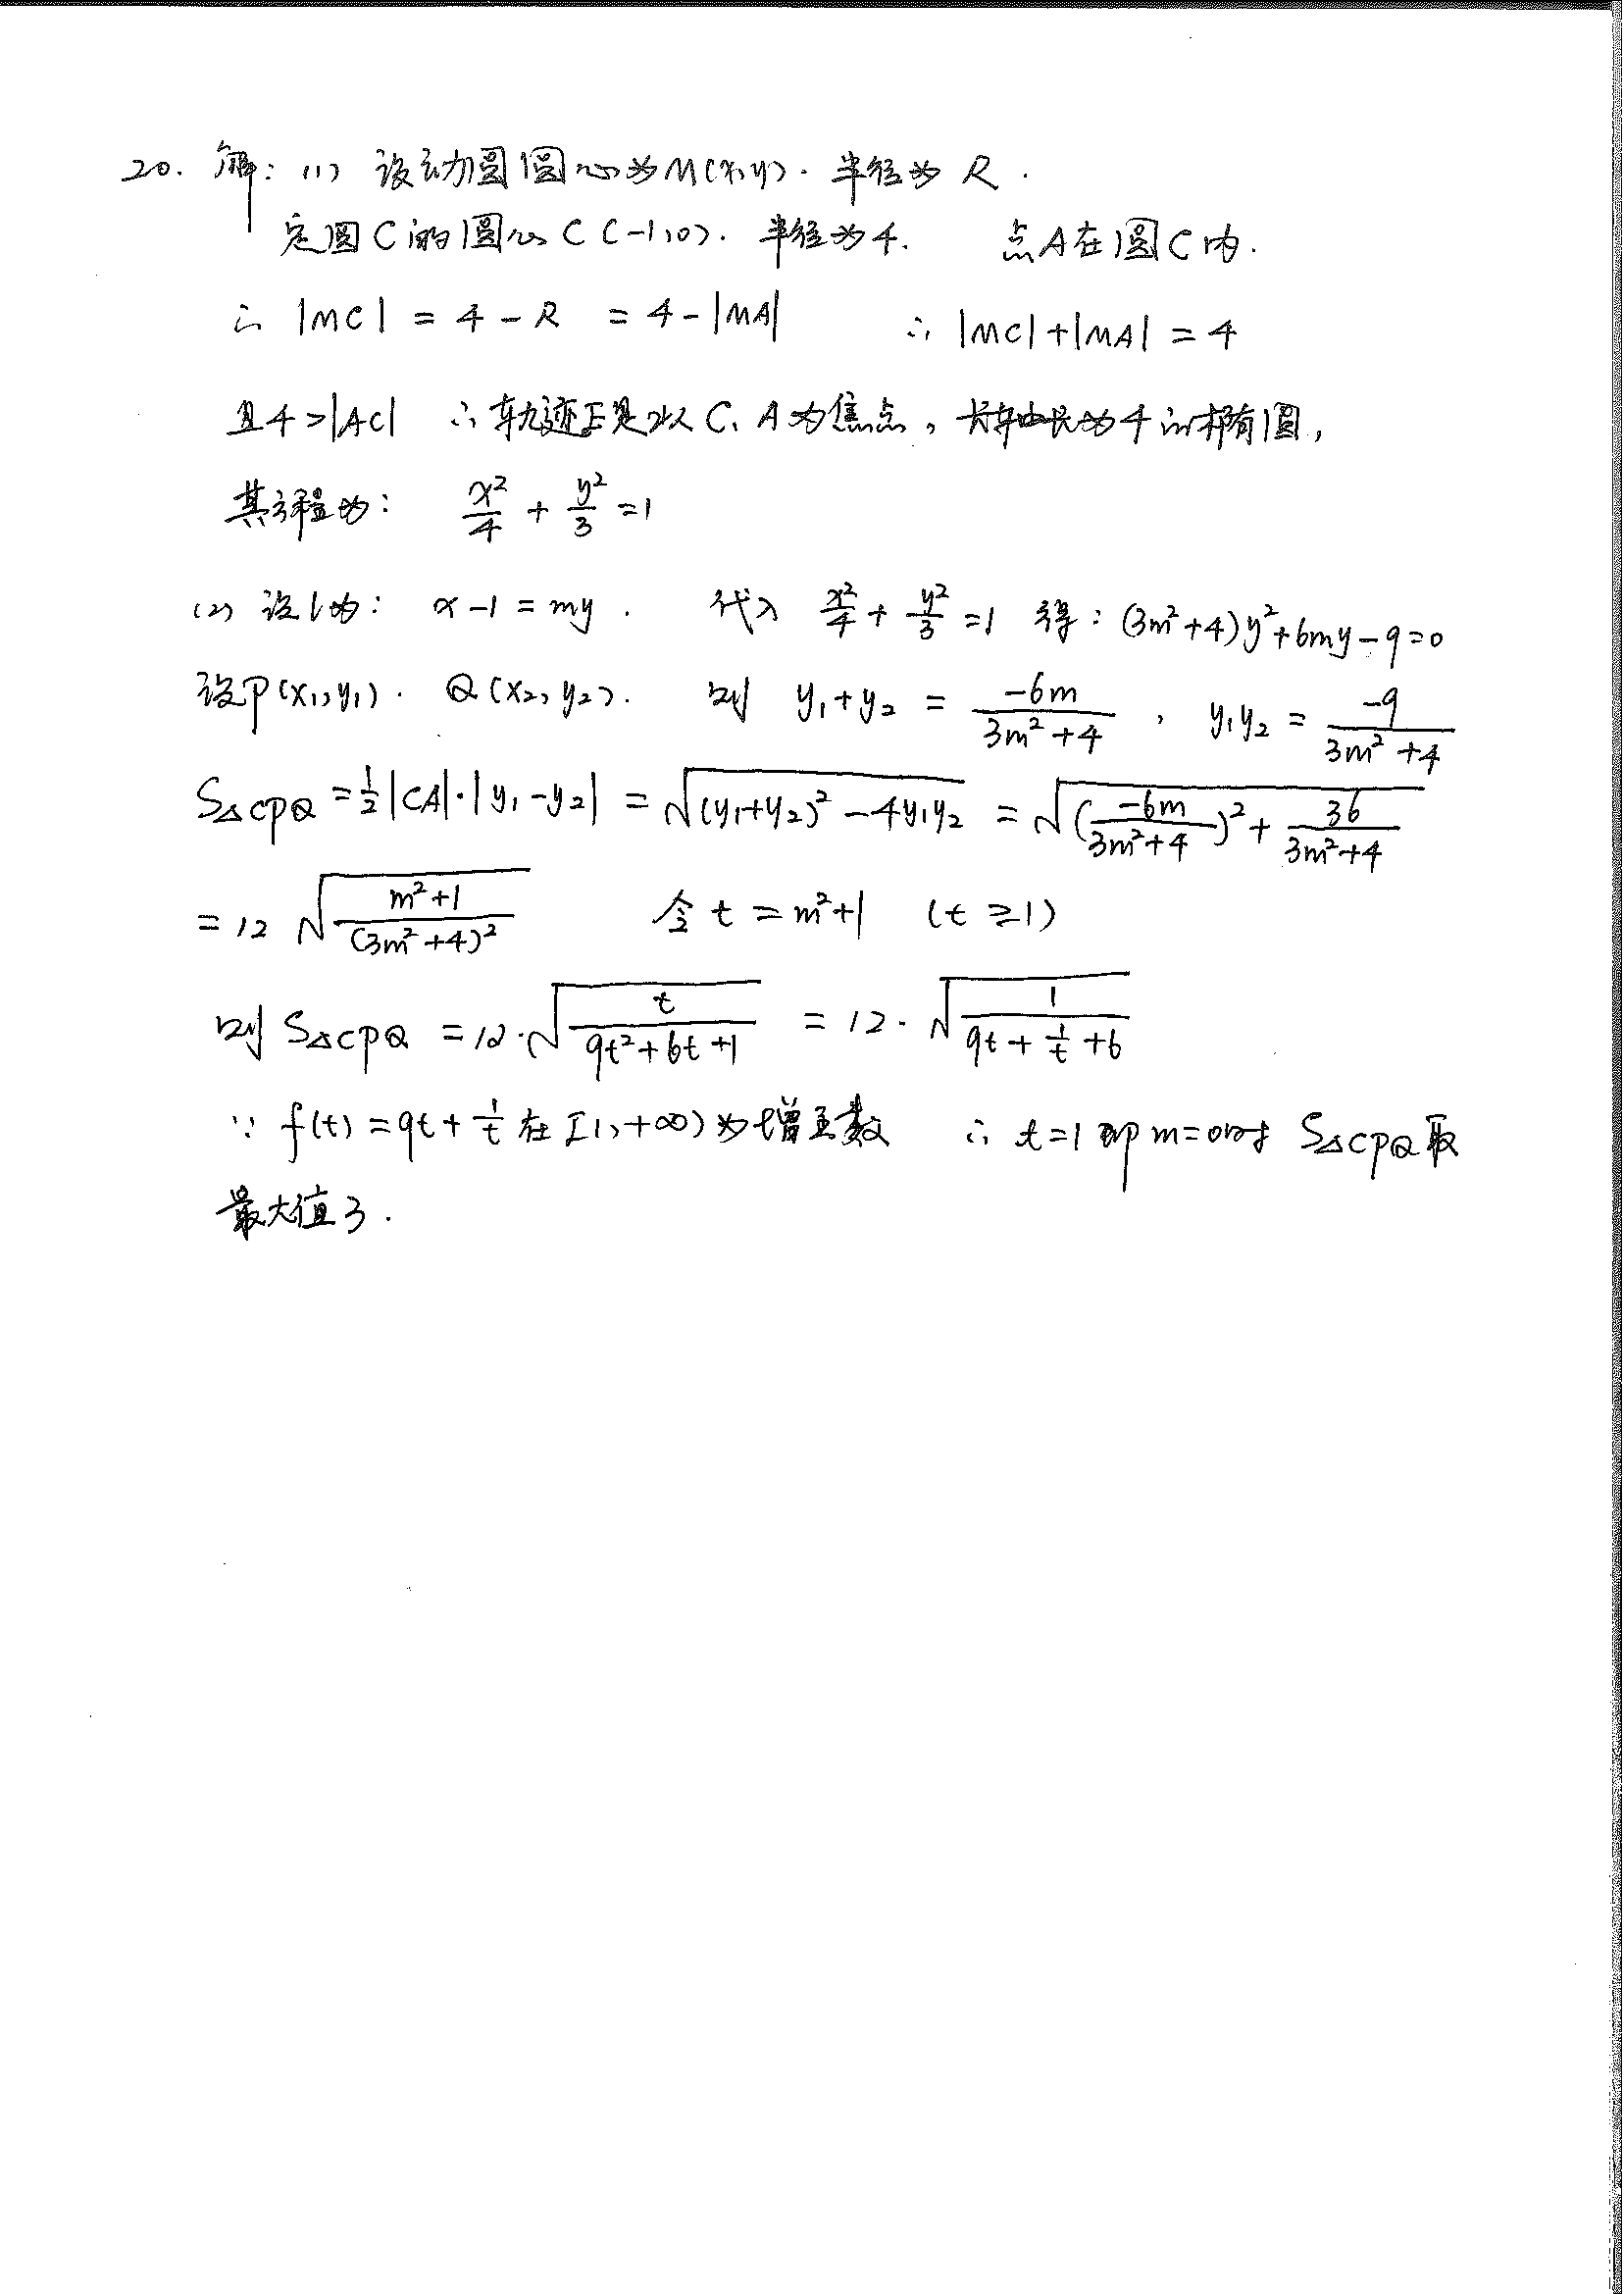 20. 解: (1) 设动圆圆心为M(x,y). 半径为 R.
定圆C的圆心 C(-1,0). 半径为4. 点A在圆C内.
∴ |MC| = 4 - R = 4 - |MA| ∴ |MC|+|MA| = 4
且4>|AC| ∴ 轨迹E是以 C、A为焦点, 长轴长为4的椭圆,
其方程为: x²/4 + y²/3 = 1
(2) 设l为: x-1 = my. 代入 x²/4 + y²/3 = 1 得: (3m²+4)y²+6my-9=0
设P(x₁,y₁). Q(x₂,y₂). 则 y₁+y₂ = -6m/(3m²+4), y₁y₂ = -9/(3m²+4)
S△CPQ = 1/2|CA|·|y₁-y₂| = √((y₁+y₂)²-4y₁y₂) = √((-6m/(3m²+4))²+36/(3m²+4))
= 12 √((m²+1)/(3m²+4)²) 令 t = m²+1 (t ≥1)
则 S△CPQ = 12·√(t/(9t²+6t+1)) = 12·√(1/(9t+1/t+6))
∵ f(t) = 9t+1/t 在 [1,+∞) 为增函数 ∴ t=1 即 m=0时 S△CPQ取
最大值3.